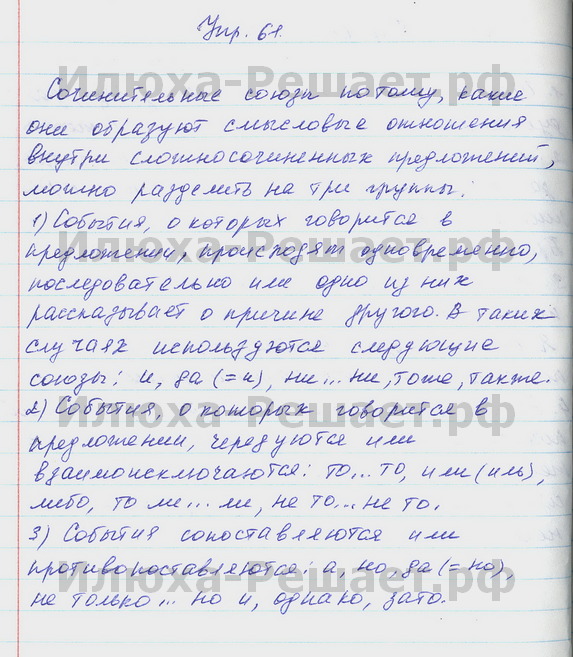 Упр. 61.
Илюха-Решает.рф
Сочинительные союзы потому, какие
они образуют смысловые отношения
внутри сложносочиненных предложений,
можно разделить на три группы:
1) События, о которых говорится в
предложении, происходят одновременно,
Илюха-Решает.рф
последовательно или одно из них
рассказывает о причине другого. В таких
случаях используются следующие
союзы: и, да (=и), ни... ни, тоже, также.
Илюха-Решает.рф
2) События, о которых говорится в
предложении, чередуются или
взаимоисключаются: то... то, или (иль),
либо, то ли... ли, не то... не то.
3) События сопоставляются или
противопоставляются: а, но, да (=но),
Илюха-Решает.рф
не только... но и, однако, зато.